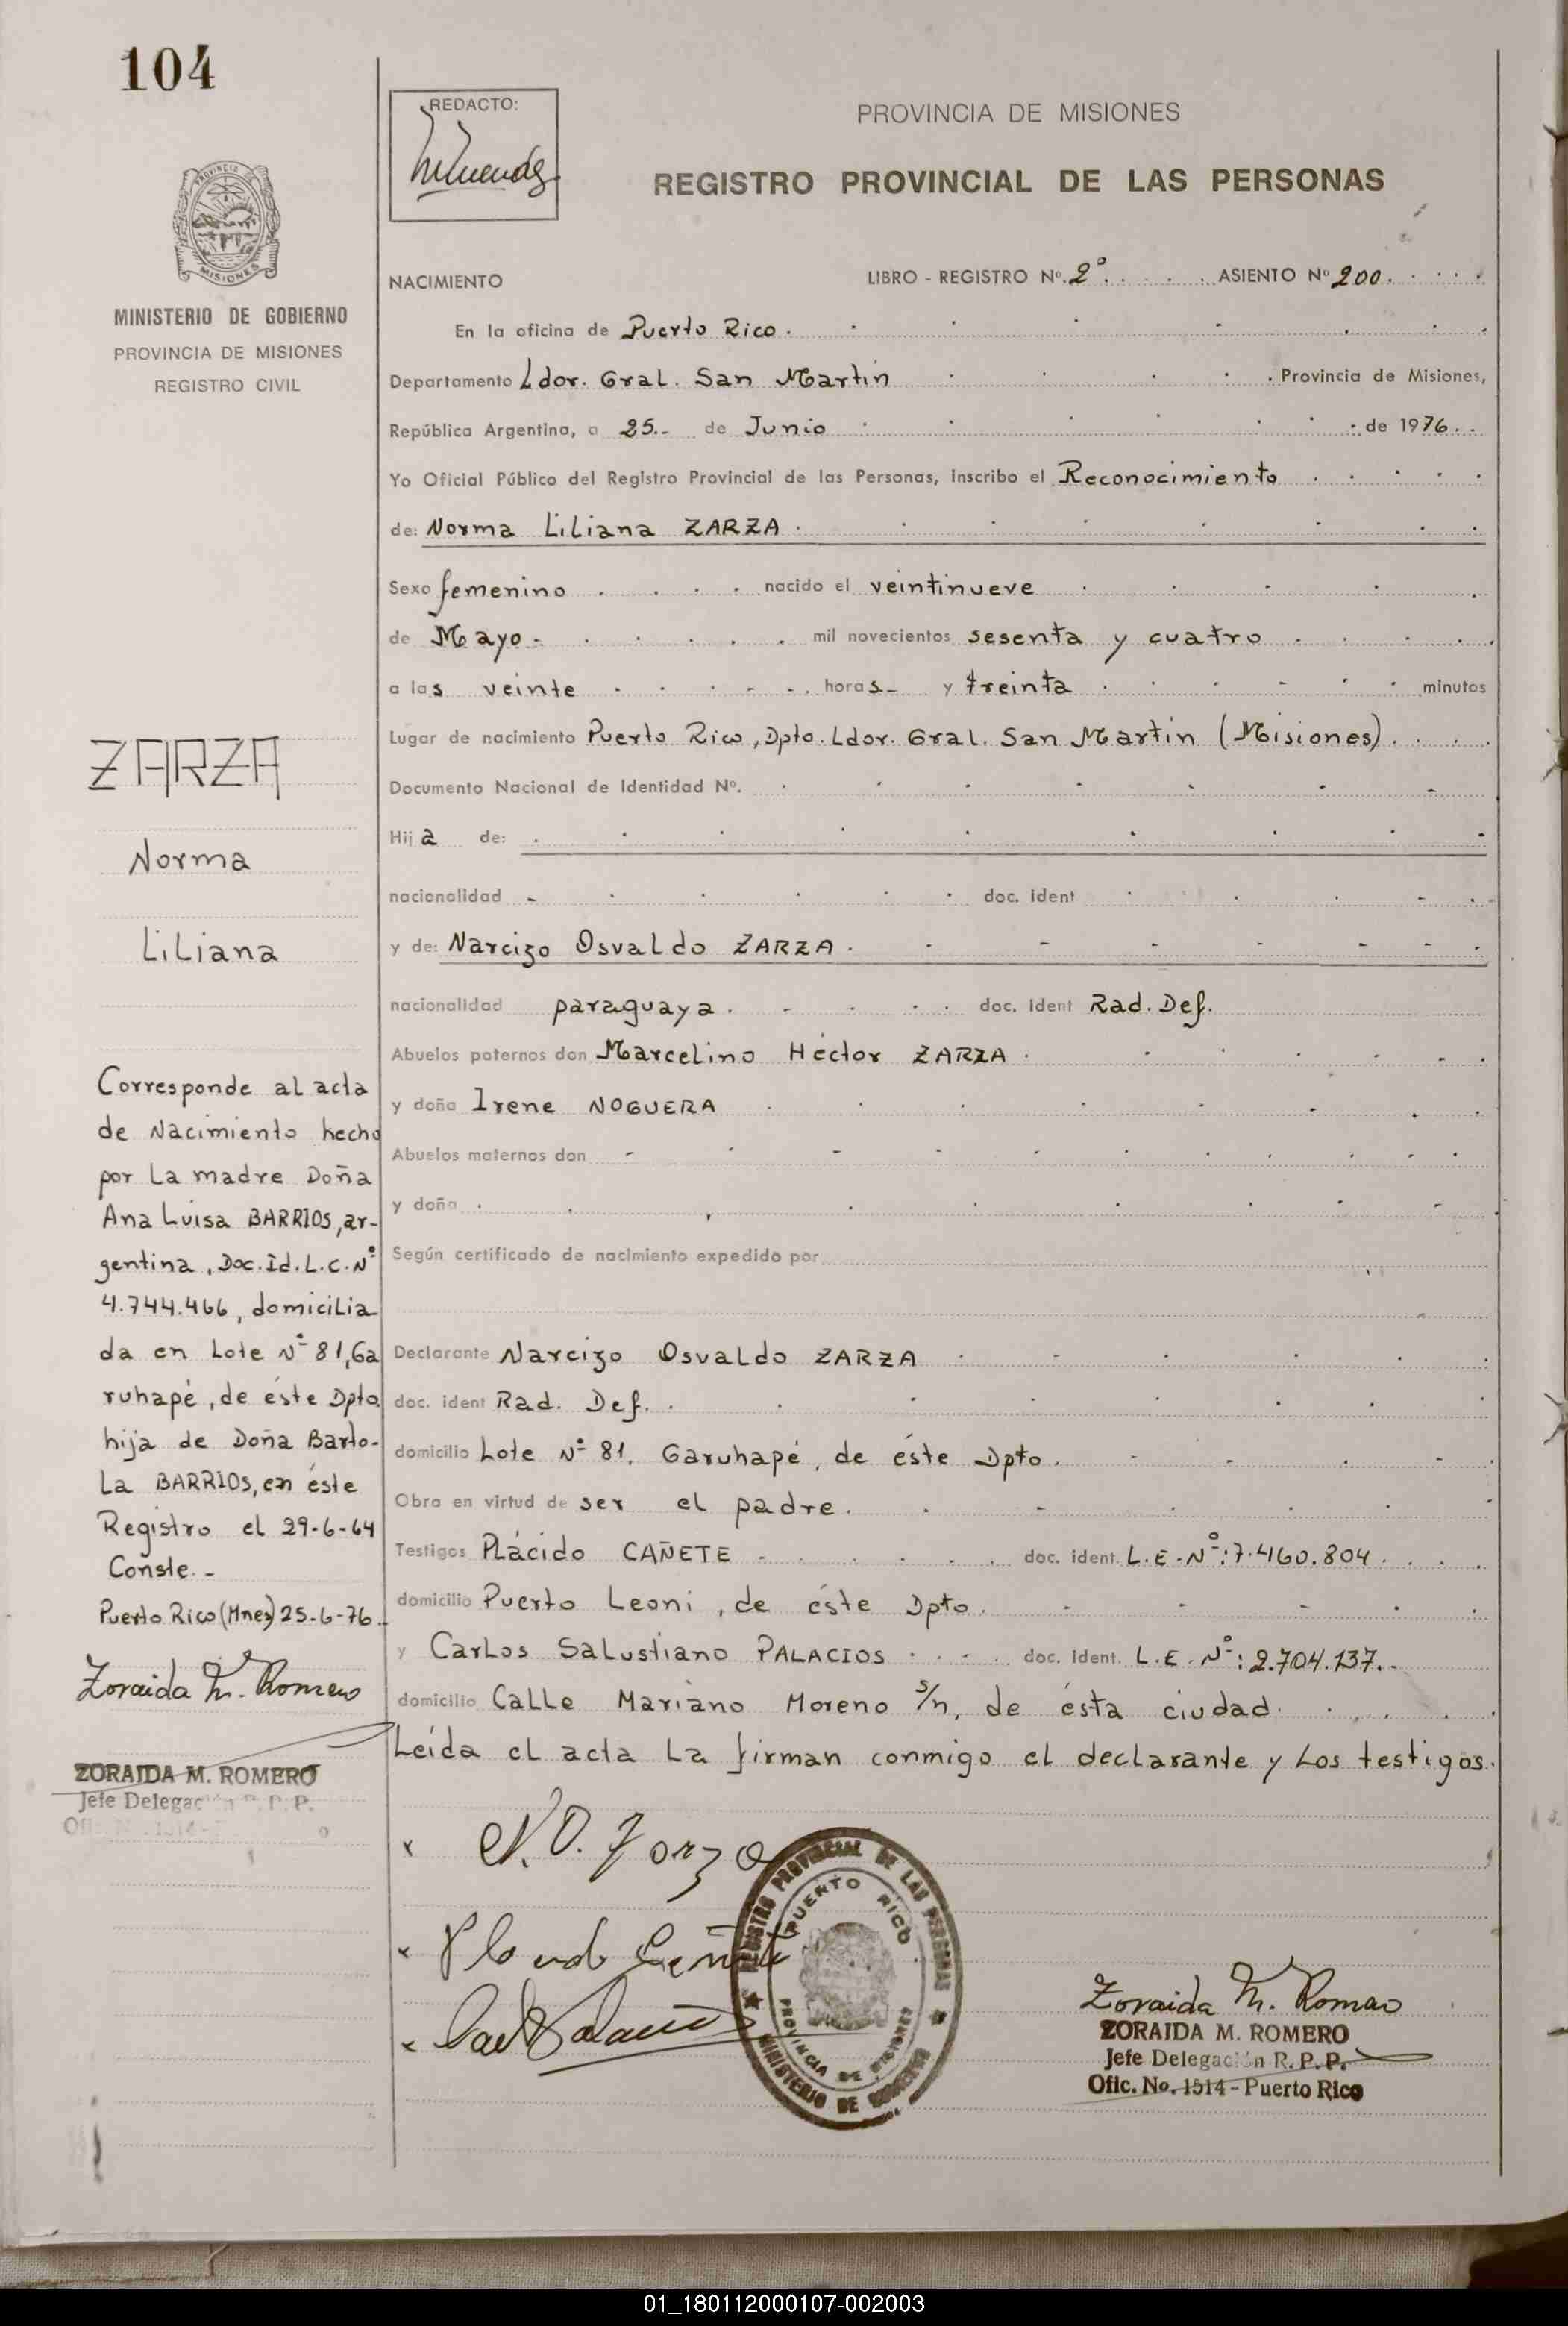 104
REDACTO:
PROVINCIA DE MISIONES
REGISTRO PROVINCIAL DE LAS PERSONAS
PROVINCIA DE
MISIONES
MINISTERIO DE GOBIERNO
PROVINCIA DE MISIONES
REGISTRO CIVIL
NACIMIENTO LIBRO - REGISTRO Nº. 2º. ASIENTO Nº 200.
En la oficina de Puerto Rico.
Departamento Ldor. Gral. San Martín Provincia de Misiones,
República Argentina, a 25.- de Junio de 1976.
Yo Oficial Público del Registro Provincial de las Personas, inscribo el Reconocimiento
de: Norma Liliana ZARZA.
Sexo femenino nacido el veintinueve
de Mayo.- mil novecientos sesenta y cuatro
a las veinte horas y treinta minutos
Lugar de nacimiento Puerto Rico, Dpto. Ldor. Gral. San Martín (Misiones).
Documento Nacional de Identidad Nº.
Hija de:
nacionalidad doc. ident
y de: Narcizo Osvaldo ZARZA.
nacionalidad paraguaya. doc. ident Rad. Def.
Abuelos paternos don Marcelino Héctor ZARZA
y doña Irene NOGUERA
Abuelos maternos don
y doña
Según certificado de nacimiento expedido por
Declarante Narcizo Osvaldo ZARZA
doc. ident Rad. Def.
domicilio Lote Nº 81, Garuhapé, de éste Dpto.
Obra en virtud de ser el padre.
Testigos Plácido CAÑETE doc. ident. L.E.Nº: 7.460.804.
domicilio Puerto Leoni, de éste Dpto.
y Carlos Salustiano PALACIOS doc. ident. L.E.Nº: 2.704.137.-
domicilio Calle Mariano Moreno s/n, de ésta ciudad.
Leída el acta la firman conmigo el declarante y los testigos.
ZARZA
Norma
Liliana
Corresponde al acta
de Nacimiento hecho
por la madre Doña
Ana Luisa BARRIOS, ar-
gentina, Doc. Id. L.C. Nº
4.744.466, domicilia
da en Lote Nº 81, Ga
ruhapé, de éste Dpto.
hija de Doña Barto-
la BARRIOS, en éste
Registro el 29-6-64
Conste.-
Puerto Rico (Mnes) 25-6-76.-
Zoraida M. Romero
ZORAIDA M. ROMERO
Jefe Delegación R. P. P.
N. O. Zarza
REGISTRO PROVINCIAL DE LAS PERSONAS
PUERTO RICO
PROVINCIA DE MISIONES
MINISTERIO DE GOBIERNO
Zoraida M. Romero
ZORAIDA M. ROMERO
Jefe Delegación R. P. P.
Ofic. No. 1514 - Puerto Rico
01_180112000107-002003